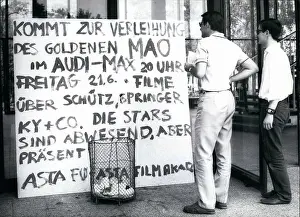 KOMMT ZUR VERLEIHUNG
DES GOLDENEN MAO
IM AUDI-MAX 20 UHR
FREITAG 21.6. + FILME
ÜBER SCHÜTZ, SPRINGER
KY + CO. DIE STARS
SIND ABWESEND, ABER
PRÄSENT
ASTA FU + ASTA FILMAKAD.